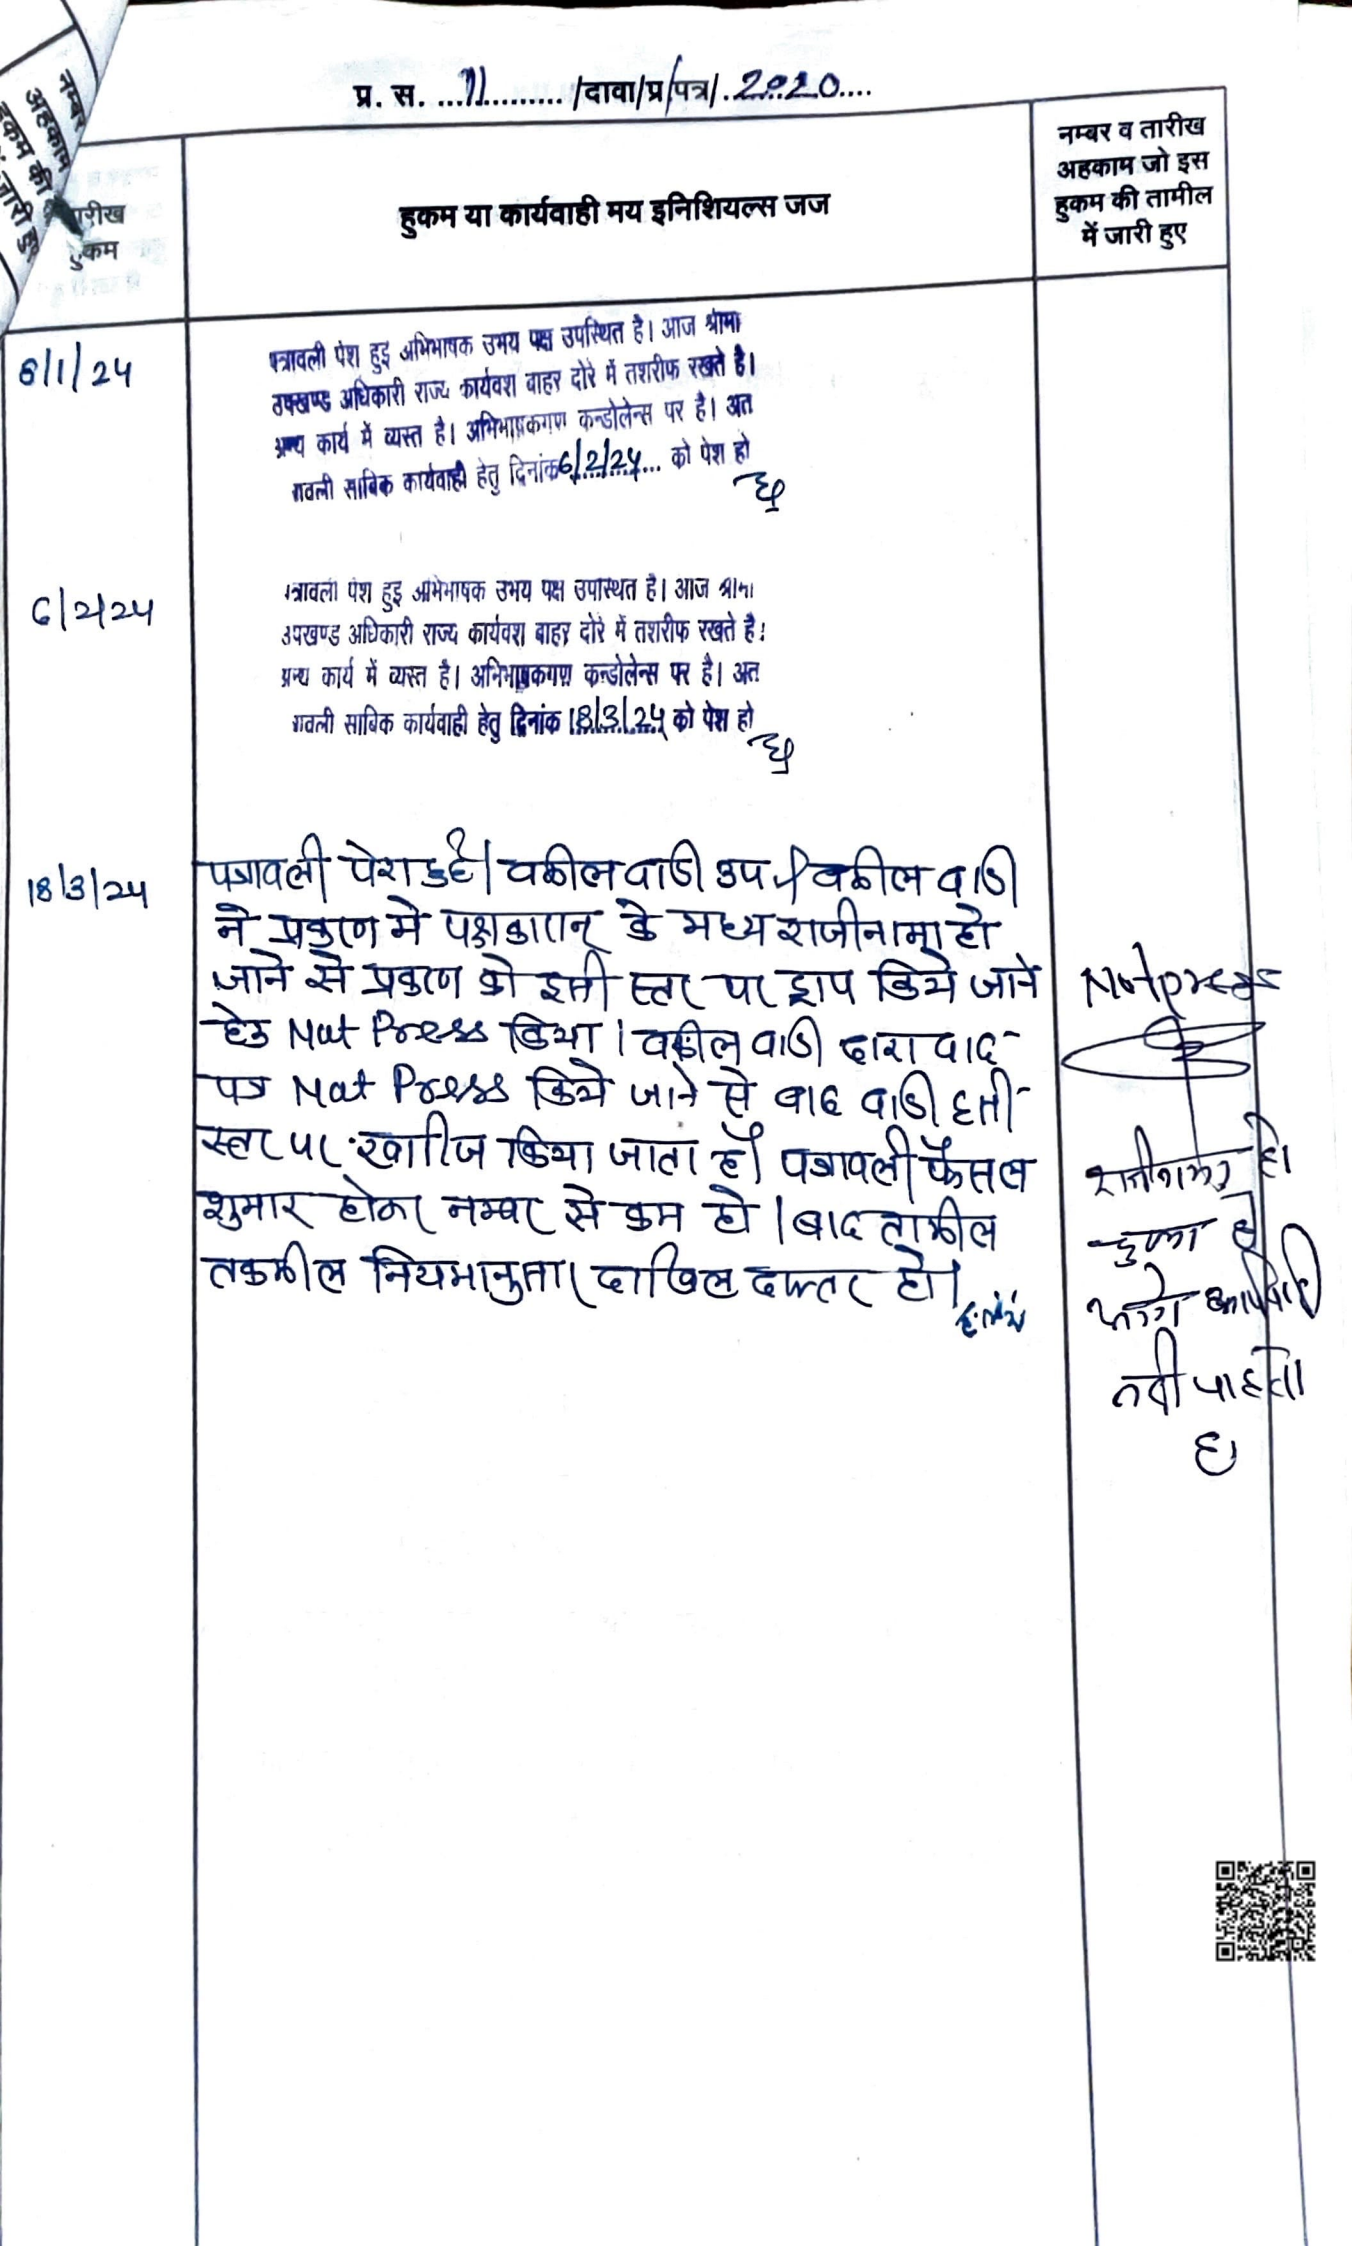 प्र. स. ...11.......... /दावा/प्र/पत्र/. 2020....
नम्बर
अहकाम
हुकम की
जारी हु
तारीख
हुकम
हुकम या कार्यवाही मय इनिशियल्स जज
नम्बर व तारीख
अहकाम जो इस
हुकम की तामील
में जारी हुए
8/1/24
पत्रावली पेश हुइ अभिभाषक उभय पक्ष उपस्थित है। आज श्रीमा
उपखण्ड अधिकारी राज्य कार्यवश बाहर दोरे में तशरीफ रखते है।
अन्य कार्य में व्यस्त है। अभिभाषकगण कन्डोलेन्स पर है। अत
गवली साबिक कार्यवाही हेतु दिनांक 6/2/24... को पेश हो
6/2/24
पत्रावली पेश हुइ अभिभाषक उभय पक्ष उपस्थित है। आज श्रीमा
उपखण्ड अधिकारी राज्य कार्यवश बाहर दोरे में तशरीफ रखते है।
अन्य कार्य में व्यस्त है। अभिभाषकगण कन्डोलेन्स पर है। अत
गवली साबिक कार्यवाही हेतु दिनांक 18/3/24 को पेश हो
18/3/24
पत्रावली पेश हुई। वकील वादी उप.। वकील वादी
ने प्रकरण मे पक्षकारान् के मध्य राजीनामा हो
जाने से प्रकरण को इसी स्तर पर ड्राप किये जाने
हेतु Not Press किया। वकील वादी द्वारा वाद-
पत्र Not Press किये जाने से वाद वादी इसी
स्तर पर खारिज किया जाता है। पत्रावली फैसल
शुमार होकर नम्बर से कम हो। बाद तामील
तकमील नियमानुसार दाखिल दफ्तर हो।
Not press
राजीनामा हो
चुका है
आगे कार्यवाही
नही चाहते
है।